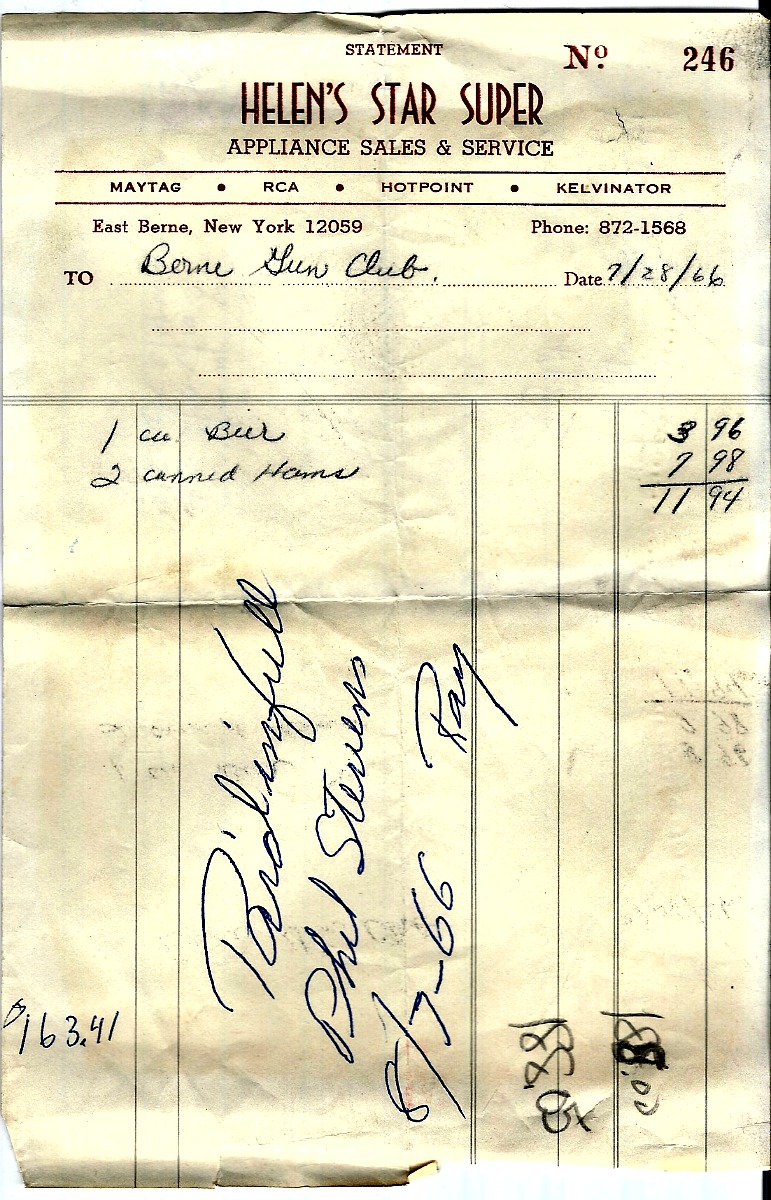 STATEMENT
Nº 246
HELEN'S STAR SUPER
APPLIANCE SALES & SERVICE
MAYTAG • RCA • HOTPOINT • KELVINATOR
East Berne, New York 12059 Phone: 872-1568
TO Berne Gun Club. Date 7/28/66
1 ca Beer 3 96
2 canned Hams 7 98
11 94
Paid in full
Phil Stevens
8/7-66 Ray
$163.41